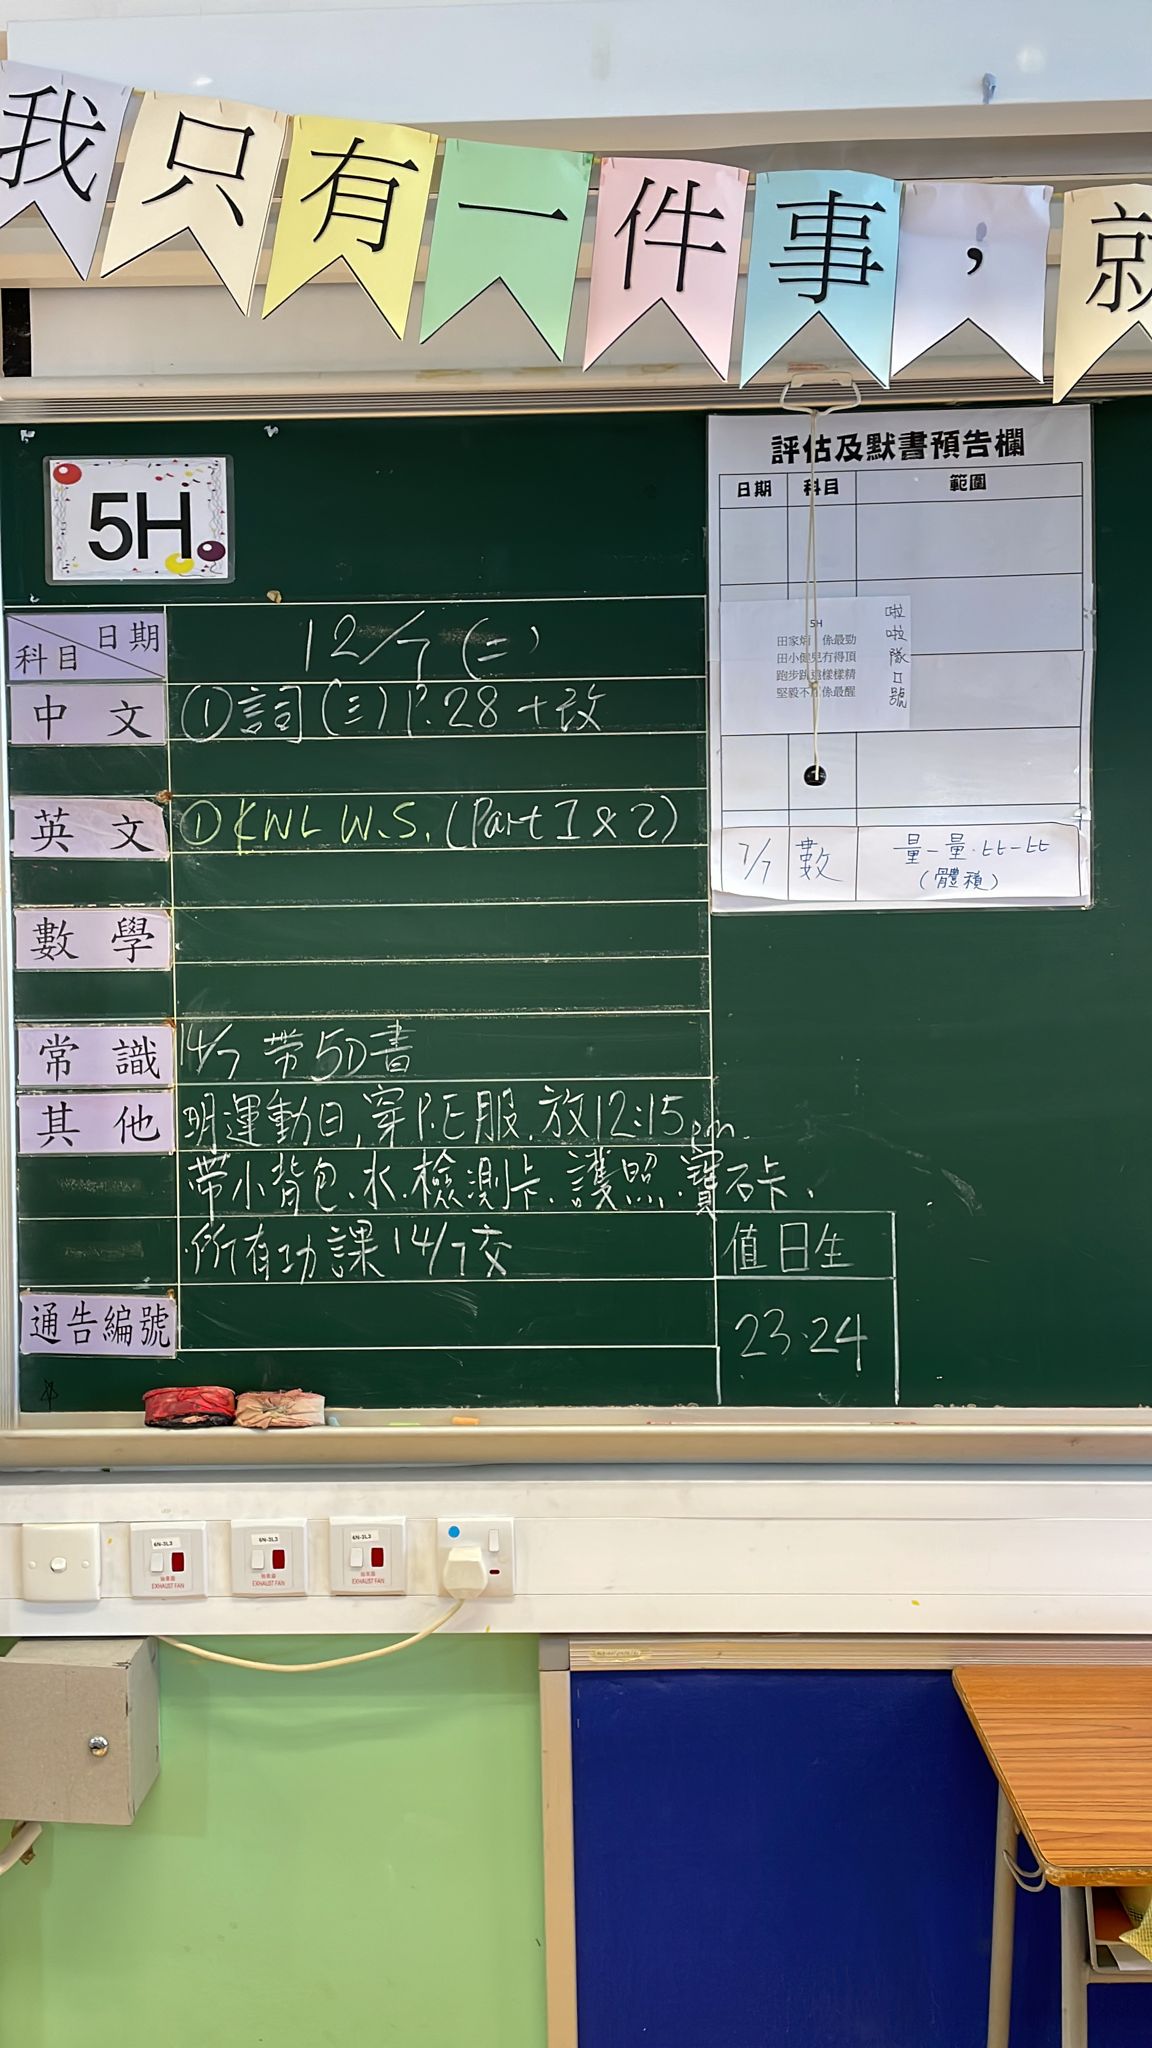 我只有一件事，就
5H
日期
科目
12/7 (二)
中文
①詞(三)P.28+改
英文
①KWL W.S. (Part 1 & 2)
數學
常識
14/7 帶5D書
其他
明運動日,穿P.E服.放12:15pm.
帶小背包、水、檢測卡、護照、寶石卡、
所有功課14/7交
通告編號
值日生
23.24
評估及默書預告欄
日期 科目 範圍
5H
係最勁
田小健兒冇得頂
係最醒
啦啦隊口號
7/7 數 量-量.比-比
(體積)
6N-3L3
抽氣扇
EXHAUST FAN
6N-3L3
抽氣扇
EXHAUST FAN
6N-3L3
抽氣扇
EXHAUST FAN